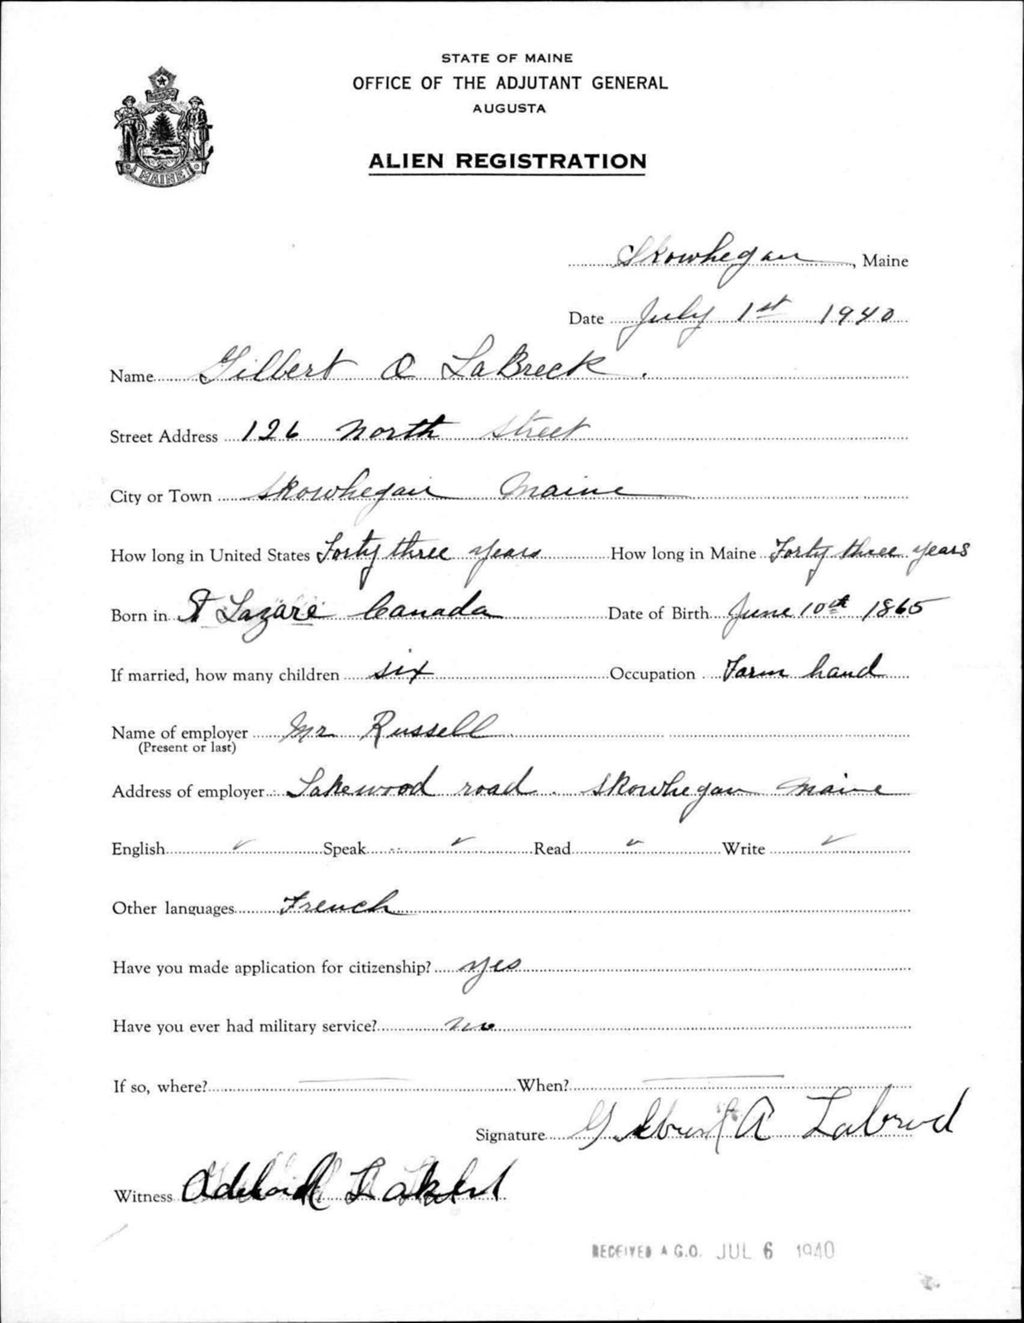 STATE OF MAINE
OFFICE OF THE ADJUTANT GENERAL
AUGUSTA
MAINE
ALIEN REGISTRATION
Skowhegan, Maine
Date July 1st 1940
Name Gilbert O LaBreck.
Street Address 126 North Street
City or Town Skowhegan Maine
How long in United States Forty three years How long in Maine Forty three years
Born in St Lazare Canada Date of Birth June 10th 1865
If married, how many children six Occupation Farm hand
Name of employer Mr Russell
(Present or last)
Address of employer Lakewood road. Skowhegan Maine
English ✓ Speak ✓ Read ✓ Write ✓
Other languages French
Have you made application for citizenship? yes
Have you ever had military service? no
If so, where? — When? —
Signature A
Witness
RECEIVED A.G.O. JUL 6 1940